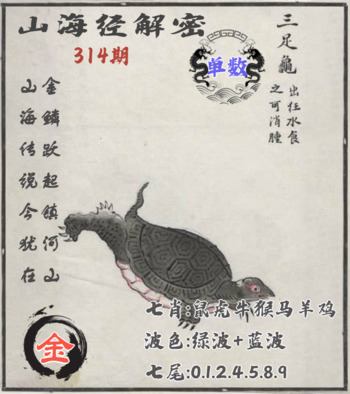 山海经解密
314期
单数
三足龜
出往水食
之可消腫
金鳞跃起镇河山
山海传说今犹在
金
七肖:鼠虎牛猴马羊鸡
波色:绿波+蓝波
七尾:0.1.2.4.5.8.9